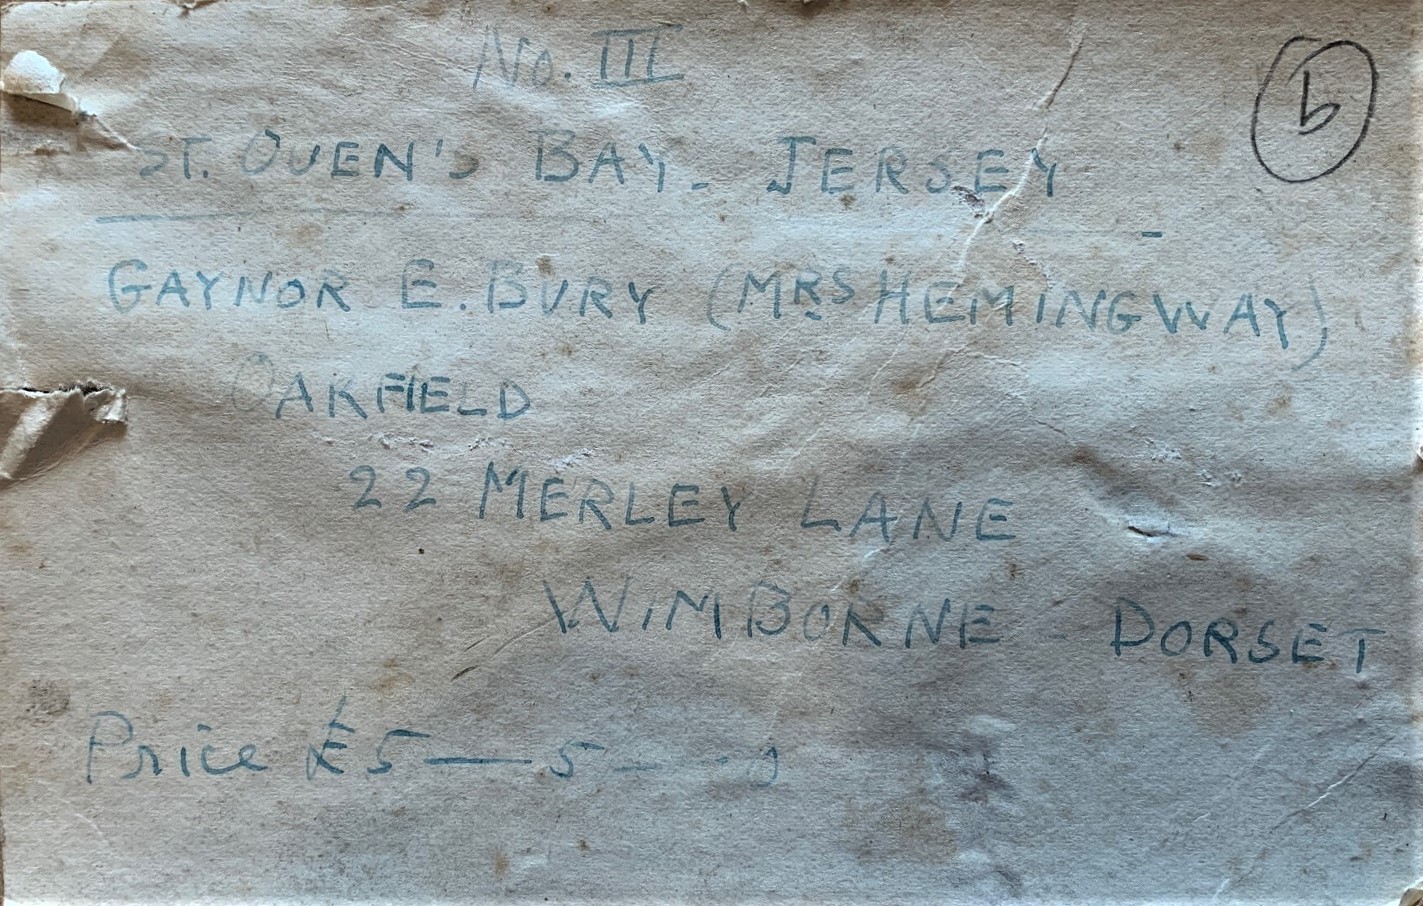 No. III
b
ST. OUEN'S BAY - JERSEY
GAYNOR E. BURY (MRS HEMINGWAY)
OAKFIELD
22 MERLEY LANE
WIMBORNE - DORSET
Price £5 — 5 — 0